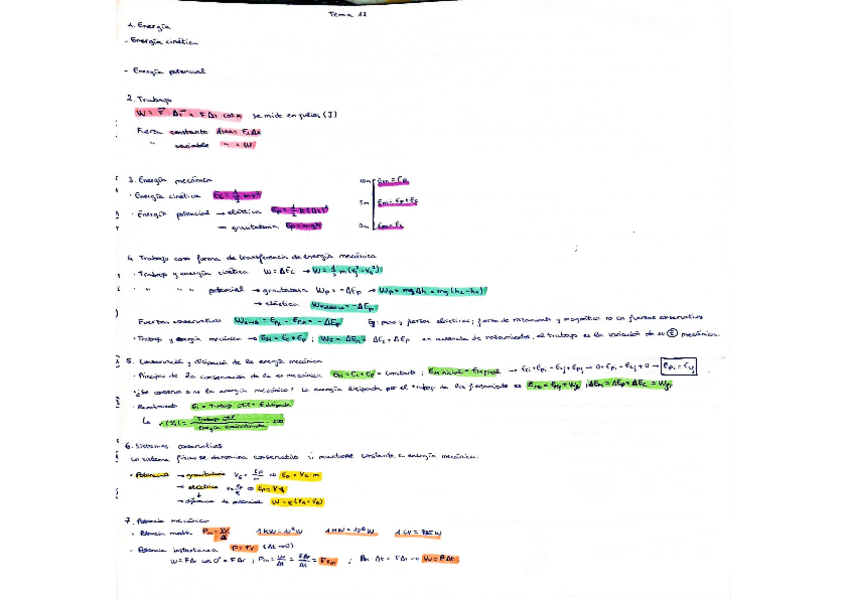 Tema 12
1. Energía
- Energía cinética
- Energía potencial
2. Trabajo
W = F · Δr = F Δr cos α se mide en julios (J)
Fuerza constante Área = F · Δx
" variable " = W
3. Energía mecánica
· Energía cinética Ec = 1/2 mv²
· Energía potencial → elástica Ep = 1/2 k (Δx)²
→ gravitatoria Ep = mgh
10m Em = Ep
5m Em = Ep + Ec
0m Em = Ec
4. Trabajo como forma de transferencia de energía mecánica
· Trabajo y energía cinética W = ΔEc → W = 1/2 m (v² - v₀²)
· " " " potencial → gravitatoria Wp = -ΔEp → Wp = mgΔh = mg (h₂ - h₁)
→ elástica = -ΔEp
Fuerzas conservativas = -ΔEp Ej: peso y fuerzas elásticas; fuerza de rozamiento y magnética no son fuerzas conservativas
· Trabajo y energía mecánica → Em = Ec + Ep ; = ΔEm = ΔEc + ΔEp en ausencia de rozamientos, el trabajo es la variación de su E mecánica.
5. Conservación y disipación de la energía mecánica
· Principio de la conservación de la en mecánica Em = Ec + Ep = constante ; Em inicial = Em final
· ¿Se conserva o no la energía mecánica? La energía disipada por el trabajo de las fuerzas de es
· Rendimiento = Trabajo útil =
↳ (%) = Trabajo útil / Energía suministrada · 100
6. Sistemas conservativos
Un sistema físico se denomina conservativo si mantiene constante su energía mecánica.
· Potencial → gravitatorio Vg = Ep/m ⇒ Ep = Vg · m
→ eléctrico V = Ep/q ⇒ Ep = V q
→ diferencia de potencial W = q (VA - VB)
7. Potencia mecánica
· Potencia media Pm = W/Δt 1 KW = 10³ W 1 MW = 10⁶ W 1 CV = 735 W
· Potencia instantánea P = Fv (Δt → 0)
W = FΔr cos 0° = FΔr ; Pm = W/Δt = FΔr/Δt = Fvm ; Pm Δt = FΔr → W = PΔt